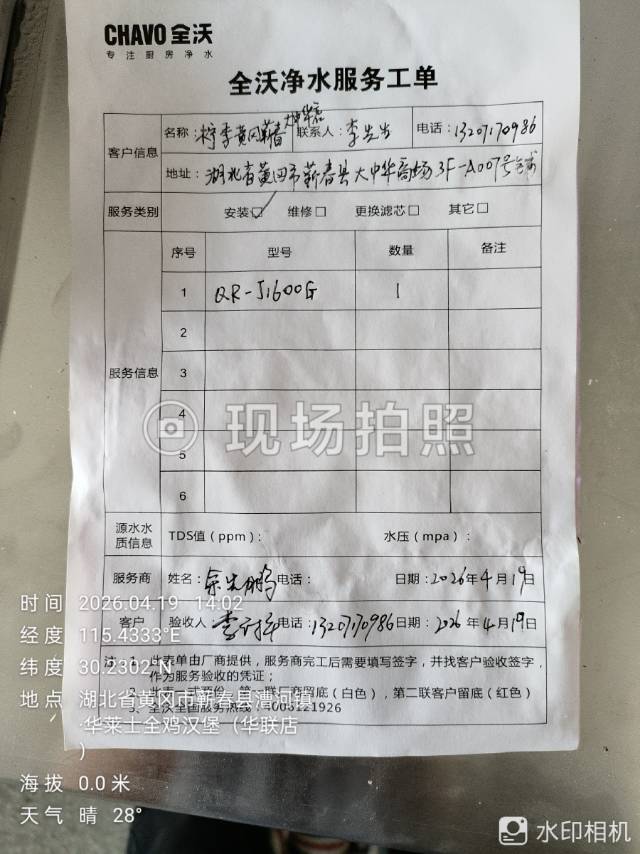 CHAVO 全沃
专注厨房净水
全沃净水服务工单
客户信息
名称：柠季黄冈蕲春大中华店
联系人：李先生
电话：13207170986
地址：湖北省黄冈市蕲春县大中华商场3F-A007号
服务类别
安装☑ 维修□ 更换滤芯□ 其它□
服务信息
序号 型号 数量 备注
1 QR-J1600G 1
2
3
4
5
6
现场拍照
源水水质信息
TDS值（ppm）： 水压（mpa）：
服务商
姓名：余先鹏 电话： 日期：2026年4月19日
客户
验收人 李 电话：13207170986 日期：2026年4月19日
注：1、此表单由厂商提供，服务商完工后需要填写签字，并找客户验收签字，
作为服务验收的凭证；
留底（白色），第二联客户留底（红色）
3、全沃全国服务热线：4008221926
时间 2026.04.19 14:02
经度 115.4333°E
纬度 30.2302°N
地点 湖北省黄冈市蕲春县漕河镇
华莱士全鸡汉堡（华联店
）
海拔 0.0 米
天气 晴 28°
水印相机